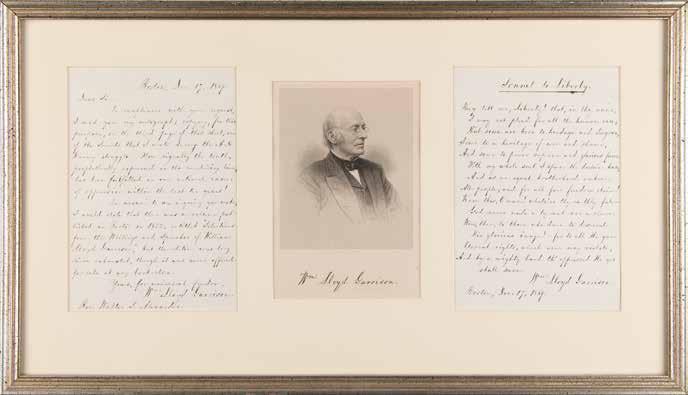 Boston, Dec. 17, 1869.
Dear Sir
In compliance with your request,
I send you my autograph, copying, for this
purpose, on the third page of this sheet, one
of the Sonnets that I wrote during the Anti-
Slavery struggle. How signally the truth,
prophetically expressed in the concluding lines,
has been fulfilled in our national
of oppression within the last ten years!
In answer to an inquiry you make,
I would state that there was a volume pub-
lished in Boston in 1852, entitled "Selections
from the Writings and Speeches of William
Lloyd Garrison;" but the edition was long
since exhausted, though it was never offered
for sale at any book-store.
Yours, for universal freedom,
Wm Lloyd Garrison.
Rev. Walter S. Alexander.
Wm Lloyd Garrison.
Sonnet to Liberty.
They tell me, Liberty! that, in thy name,
I may not plead for all the human race;
That some are born to bondage and disgrace,
Some to a heritage of woe and shame,
And some to power supreme, and glorious fame.
With my whole soul I spurn the doctrine base,
And, as an equal brotherhood, embrace
All people, and for all fair freedom claim!
Know this, O man! whate'er thy earthly fate—
God never made a tyrant nor a slave:
Woe, then, to those who dare to desecrate
His glorious image! for to all He gave
Eternal rights, which none may violate;
And, by a mighty hand, the oppressed He yet
shall save.
Wm Lloyd Garrison.
Boston, Dec. 17, 1869.